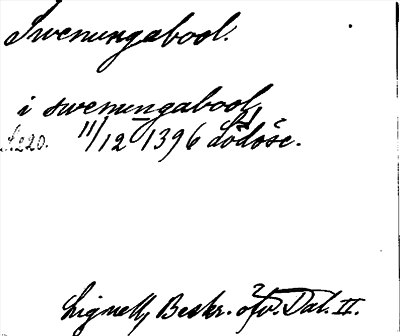 Swenungabool.
i swenungabool
S. 220. 11/12 1396 dödöse.
Lignell, Beskr. öfv. Dal. II.